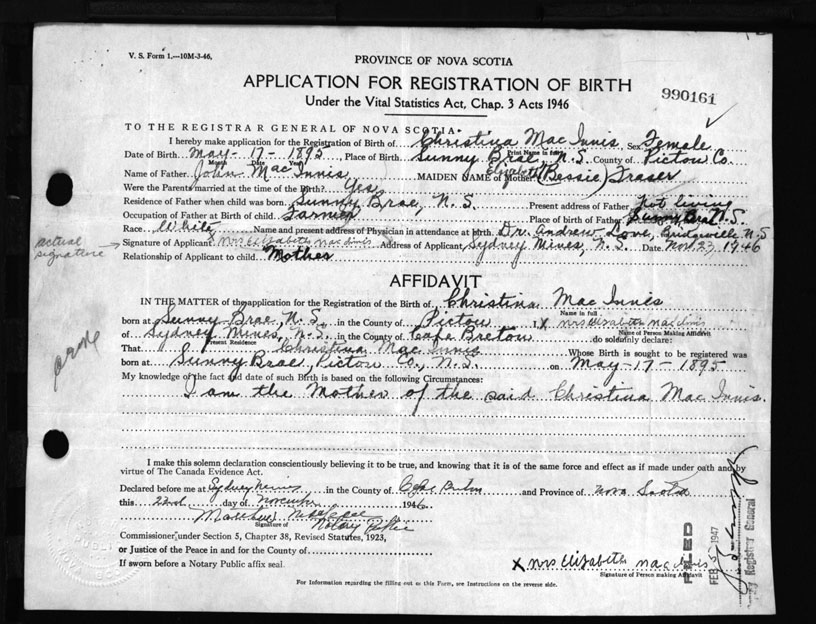 V. S. Form 1.—10M-3-46.
PROVINCE OF NOVA SCOTIA
APPLICATION FOR REGISTRATION OF BIRTH
990161
Under the Vital Statistics Act, Chap. 3 Acts 1946
TO THE REGISTRAR GENERAL OF NOVA SCOTIA:
I hereby make application for the Registration of Birth of Christina Mac Innis, Sex Female
Print Name in full
Date of Birth May - 17 - 1895, Place of Birth Sunny Brae, N.S. County of Pictou Co.
Month Date Year
Name of Father John Mac Innis MAIDEN NAME of Mother Elizabeth (Bessie) Fraser
Were the Parents married at the time of the Birth? Yes
Residence of Father when child was born Sunny Brae, N.S. Present address of Father Not living
Occupation of Father at Birth of child Farmer Place of birth of Father Sunny Brae N.S.
Race White Name and present address of Physician in attendance at birth Dr. Andrew Love, Bridgeville N.S
actual signature
Signature of Applicant Mrs Elizabeth Mac Innis Address of Applicant Sydney Mines, N.S. Date Nov. 23, 1946
Relationship of Applicant to child Mother
AFFIDAVIT
IN THE MATTER of the application for the Registration of the Birth of Christina Mac Innis
Name in full
born at Sunny Brae, N.S. in the County of Pictou I X Mrs Elizabeth Mac Innis
Name of Person Making Affidavit
of Sydney Mines, N.S. in the County of Cape Breton do solemnly declare:
Present Residence
That Christina Mac Innis Whose Birth is sought to be registered was
born at Sunny Brae, Pictou Co., N.S. on May - 17 - 1895
My knowledge of the fact and date of such Birth is based on the following Circumstances:
I am the Mother of the said Christina Mac Innis.
I make this solemn declaration conscientiously believing it to be true, and knowing that it is of the same force and effect as if made under oath and by
virtue of The Canada Evidence Act.
Declared before me at Sydney Mines in the County of Cape Breton and Province of Nova Scotia
this 22nd day of November 1946.
Signature of
Notary Public
Commissioner, under Section 5, Chapter 38, Revised Statutes, 1923,
or Justice of the Peace in and for the County of
If sworn before a Notary Public affix seal.
X Mrs Elizabeth Mac Innis
Signature of Person making Affidavit
For Information regarding the filling out of this Form, see Instructions on the reverse side.
FILED
FEB 5 1947
Registrar General